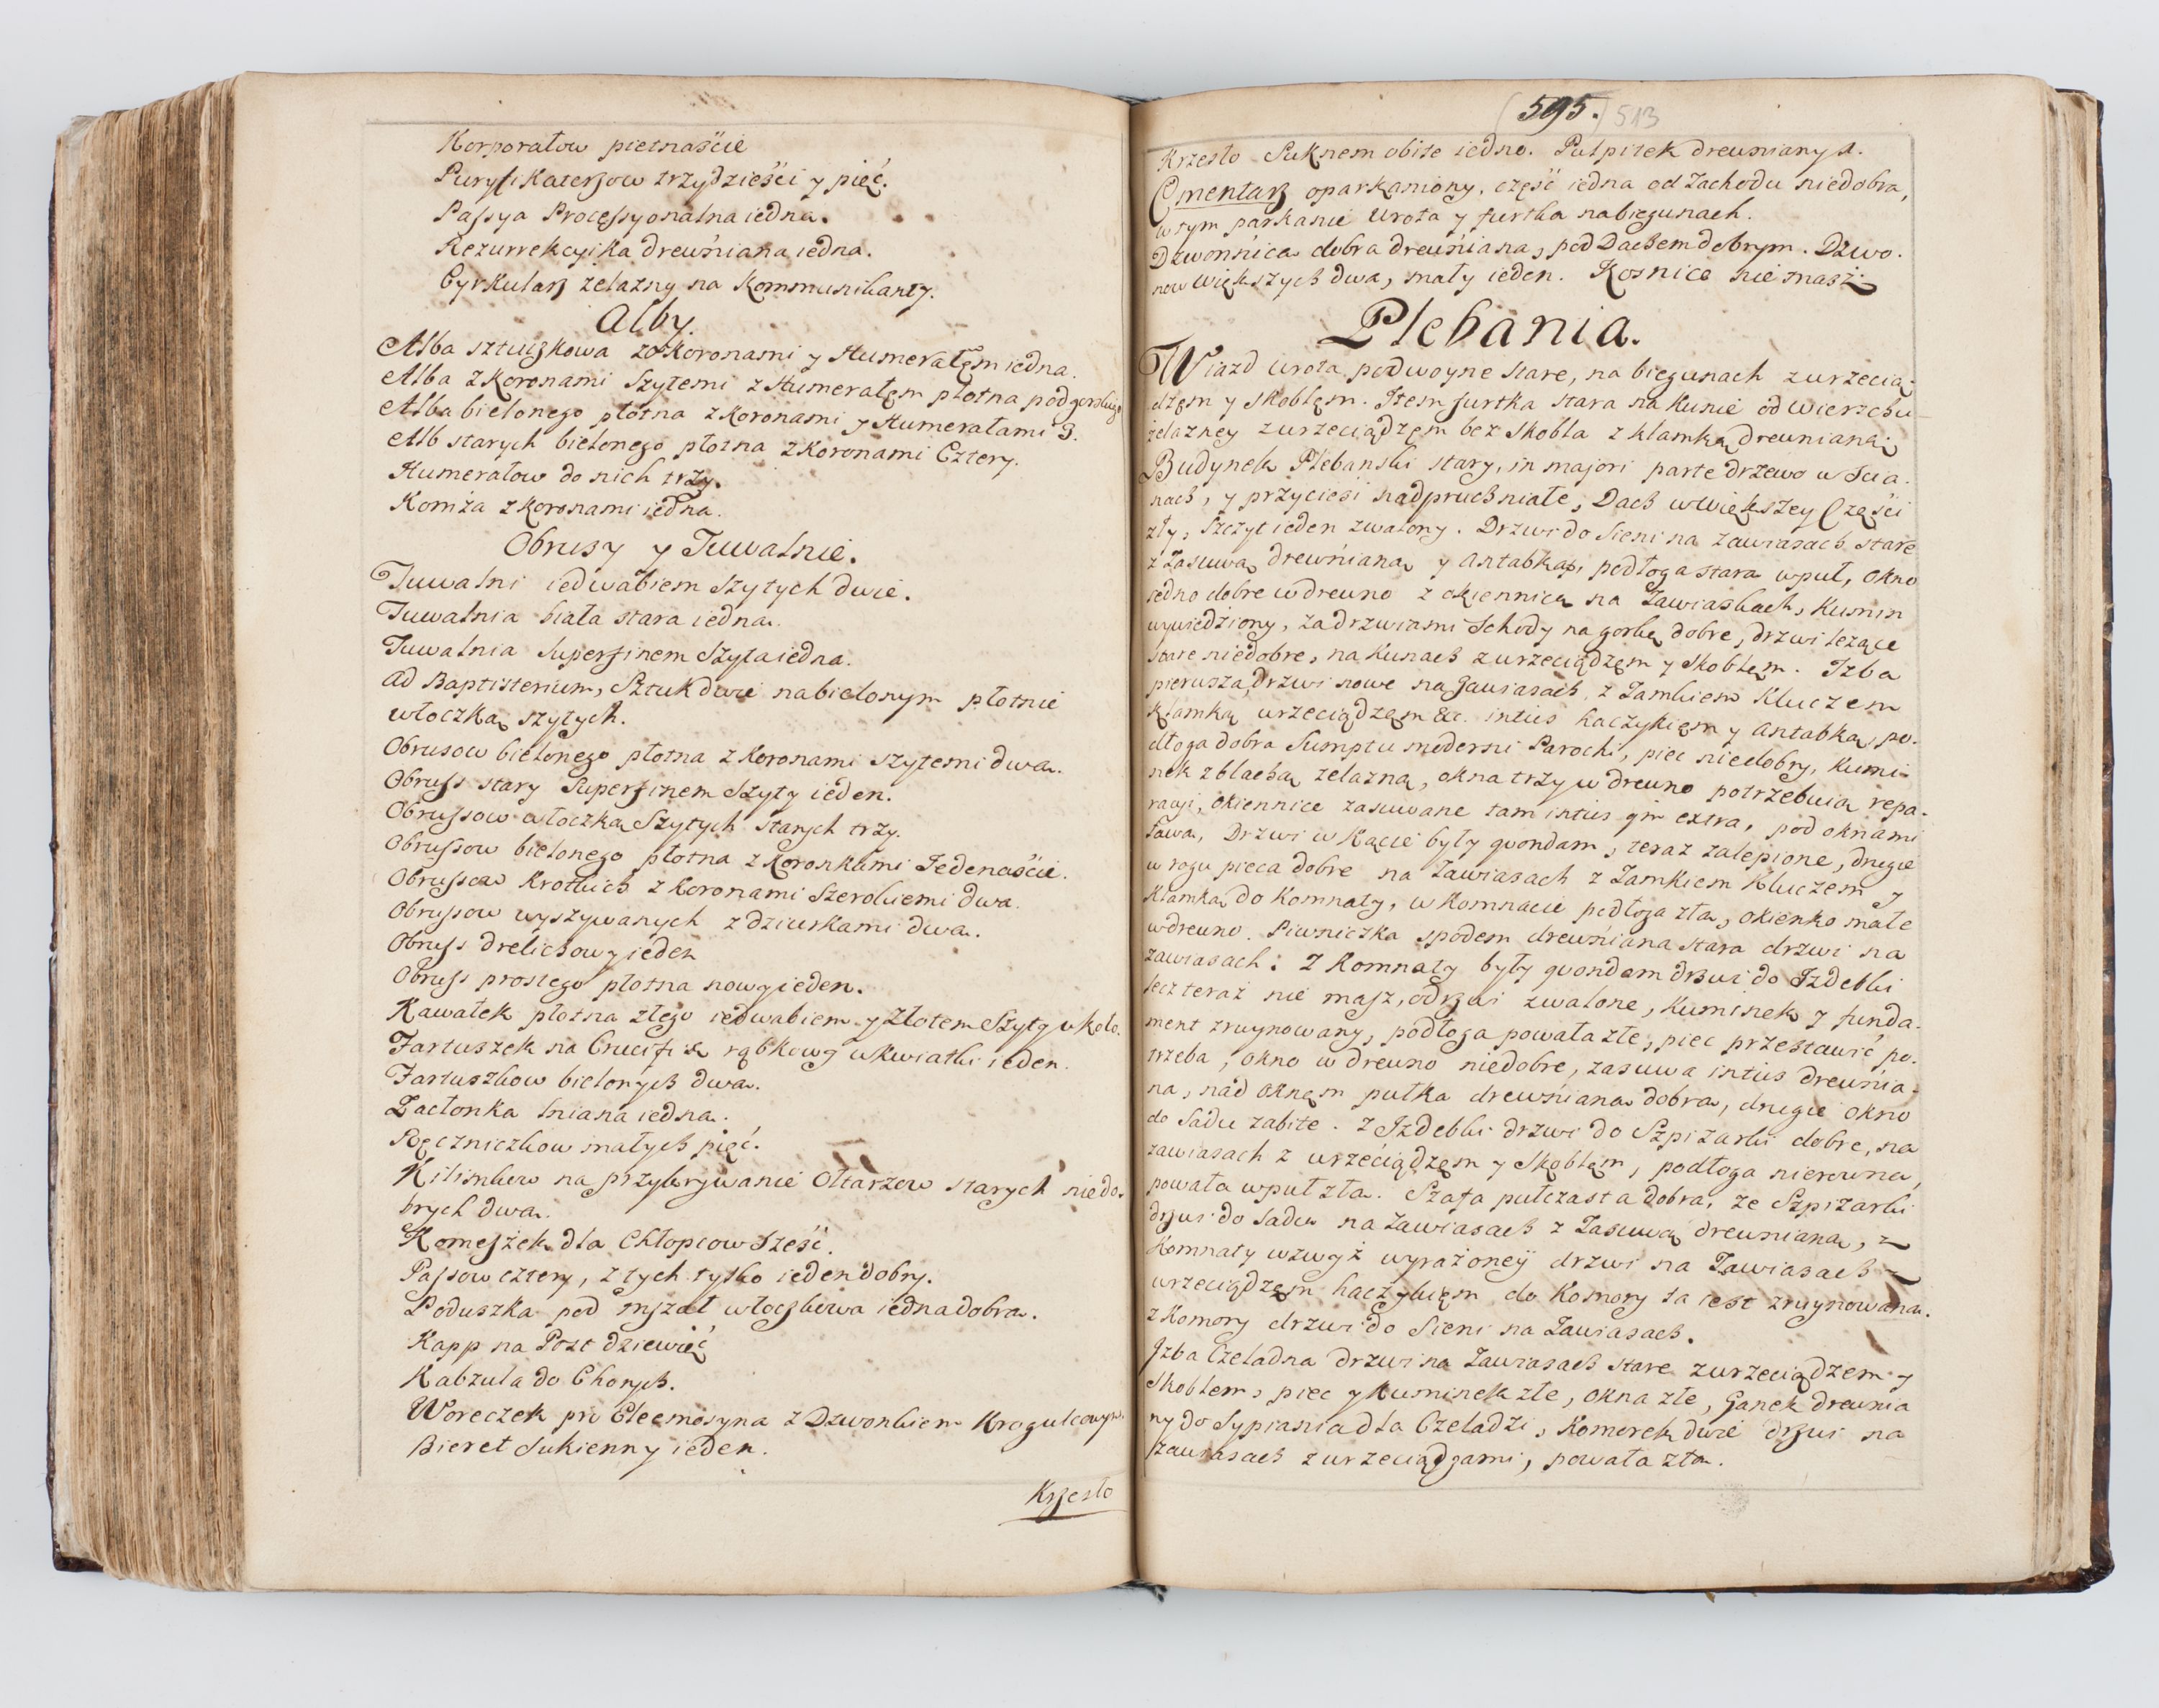 Korporałow pietnaście
Puryfikaterzow trzydzieści y pięć.
Passya Processyonalna iedna.
Rezurrekcyika drewniana iedna.
Cyrkularz żelazny na Kommunikanty.
Alby.
Alba sztuczkowa z Koronami y Humerałęm iedna.
Alba z Koronami Szytemi z Humerałęm płotna podgorskiego
Alba bielonego płotna z Koronami y Humerałami 3.
Alb starych bielonego płotna z Koronami Cztery.
Humerałow do nich trzy.
Komża z Koronami iedna.
Obrusy y Tuwalnie.
Tuwalni iedwabiem Szytych dwie.
Tuwalnia biała stara iedna.
Tuwalnia Superfinem Szyta iedna.
ad Baptisterium, Sztuk dwie na bielonym płotnie
włoczką szytych.
Obrusow bielonego płotna z Koronami szytemi dwa.
Obruss stary Superfinem Szyty ieden.
Obrussow włoczką Szytych starych trzy.
Obrussow bielonego płotna z Koronkami Jedenaście.
Obrussow Krotkich z Koronami Szerokiemi dwa.
Obrussow wyszywanych z dziurkami dwa.
Obruss drelichowy ieden
Obruss prostego płotna nowy ieden.
Kawałek płotna złego iedwabiem y Złotem Szyty w koło.
Fartuszek na Crucifix rąbkowy w kwiatki ieden.
Fartuszkow bielonych dwa.
Zasłonka lniana iedna.
Ręczniczkow małych pięć.
Kilimkow na przykrywanie Ołtarzow starych niedo-
brych dwa.
Komeżek dla Chłopcow Sześć.
Passow cztery, z tych tylko ieden dobry.
Poduszka pod mszał włoczkowa iedna dobra.
Kapp na Post dziewięć
Kabzula do Chorych.
Woreczek pro Eleemosyna z Dzwonkiem Krogulcowym.
Bieret Sukienny ieden.
Krzesło
595. 513
Krzesło Suknem obite iedno. Pulpitek drewniany 1.
Cmentarz oparkaniony, część iedna od Zachodu niedobra,
w tym parkanie wrota y furtka na biegunach.
Dzwonnica dobra drewniana, pod Dachem dobrym. Dzwo-
now Większych dwa, mały ieden. Kosnice nie masz.
Plebania.
Wiazd wrota podwoyne stare, na biegunach z wrzecią-
dzęm y skoblęm. Item furtka stara na Kunie od wierzchu
żelazney z wrzeciądzęm bez skobla z klamką drewnianą
Budynek Plebanski stary, in majori parte drzewo w Scia-
nach, y przyciesi nadpruchniałe, Dach w większey Części
zły, Szczyt ieden zwalony. Drzwi do Sieni na zawiasach stare
z Zasuwą drewnianą y antabką, podłoga stara wpuł, okno
iedno dobre w drewno z okiennicą na Zawiaskach, Kumin
wywiedziony, za drzwiami Schody na gorkę dobre, drzwi leżące
stare niedobre, na Kunach z wrzeciądzęm y Skoblęm. Izba
pierwsza, drzwi nowe na Zawiasach z Zamkiem Kluczem
klamką wrzeciądzęm &c. intus haczykięm y antabką, po-
dłoga dobra Sumptu moderni Parochi, piec niedobry, Kumi-
nek z blachą żelazną, okna trzy w drewno potrzebuią repa-
racyi, okiennice zasuwane tam intus qm extra, pod oknami
ława, Drzwi w Kącie były quondam, teraz zalepione, drugie
w rogu pieca dobre na Zawiasach z Zamkiem Kluczem y
Klamką do Komnaty, w Komnacie podłoga zła, okienko małe
w drewno. Piwniczka spodem drewniana stara drzwi na
zawiasach: Z Komnaty były quondam drzwi do Izdebki
lecz teraz nie masz, odrzwi zwalone, Kuminek y funda-
ment zruynowany, podłoga powała złe, piec przestawić po-
trzeba, okno w drewno niedobre, zasuwa intus drewnia-
na, nad oknęm pułka drewniana dobra, drugie okno
do Sadu zabite. Z Izdebki drzwi do Szpiżarki dobre, na
zawiasach z wrzeciądzęm y Skoblęm, podłoga nierowna,
powała wpuł zła. Szafa pułczasta dobra, ze Szpiżarki
drzwi do Sadu na Zawiasach z Zasuwą drewnianą, z
Komnaty wzwyż wyrażoney drzwi na Zawiasach z
wrzeciądzęm haczykięm do Komory ta iest zruynowana.
z Komory drzwi do Sieni na Zawiasach.
Izba Czeladna drzwi na Zawiasach stare z wrzeciądzem y
Skoblem, piec y Kuminek złe, okna złe, Ganek drewnia
ny do Sypiania dla Czeladzi, Komorek dwie drzwi na
zawiasach z wrzeciądzami, powała zła.